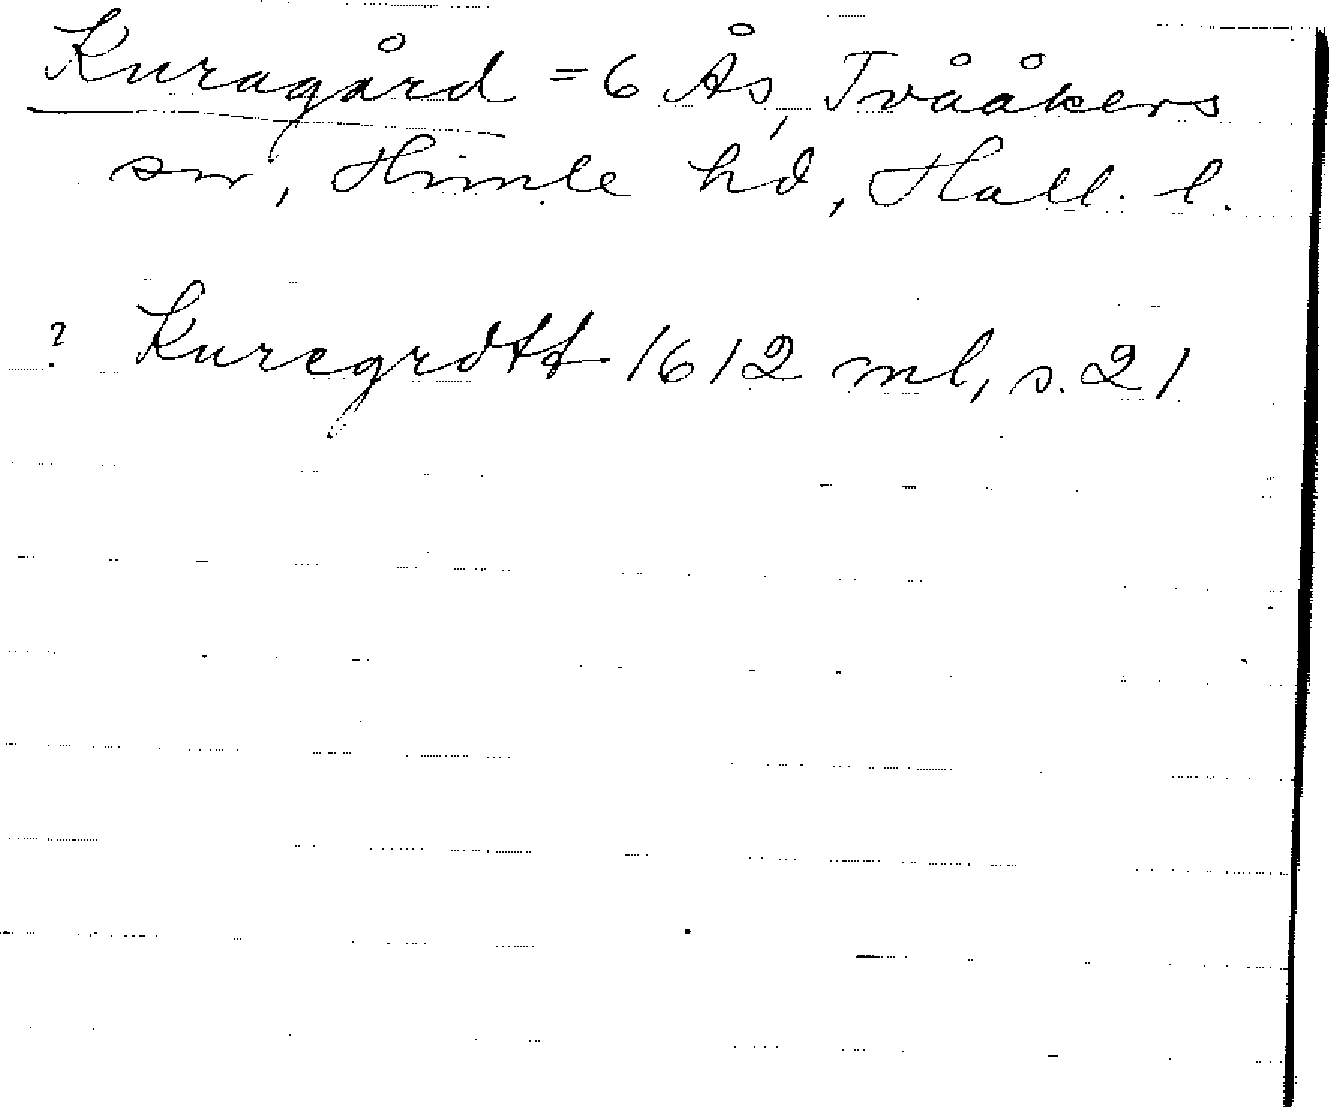 Kuragård = 6 Ås, Tvååkers
sn, Himle hd, Hall. l.
? Kuregrdtt 1612 ml, s. 21